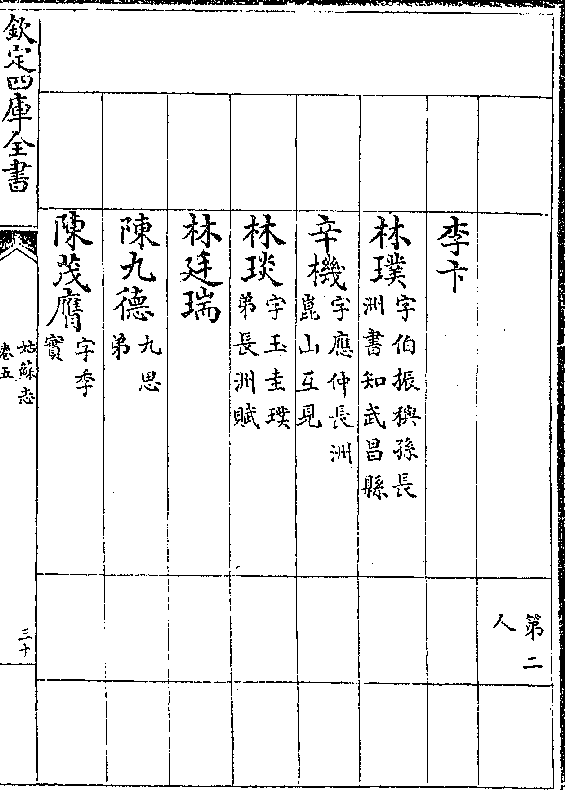 第二
人
李卞
林璞 字伯振䅳孫長
洲書知武昌縣
辛機 字應仲長洲
崑山互見
林琰 字玉圭璞
弟長洲賦
林廷瑞
陳九德 九思
弟
陳茂膺 字季
實
欽定四庫全書
姑蘇志
卷五
三十